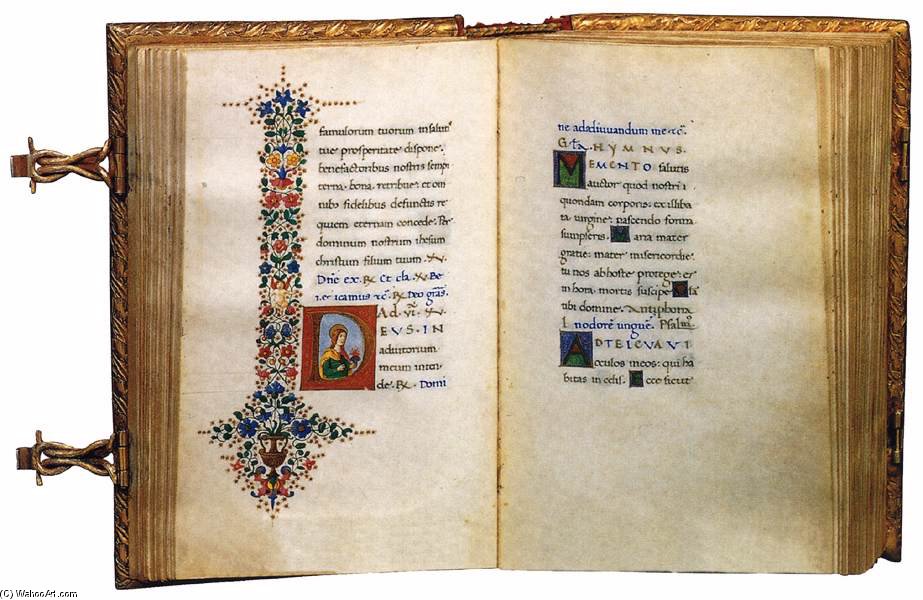 famulorum tuorum in salut
tue prosperitate dispone.
benefactoribus nostris sempi
terna. bona. retribue. et om
nibus fidelibus defunctis re
quiem eternam concede. Per
dominum nostrum ihesum
christum filium tuum.
Dñe ex. ℞. Et cla. Be
ne icamus ℞. Deo grãs.
Ad vĩ.
DEUS IN
adiutorium
meum inten
de. ℞. Domi
ne ad adiuvandum me
HYMNUS.
MEMENTO salutis
auctor quod nostri
quondam corporis. ex illiba
ta virgine nascendo forma
sumpseris. Maria mater
gratie. mater misericordie.
tu nos ab hoste protege. et
in hora. mortis suscipe.
tibi domine. Antiphona
In odorẽ unguẽ. Psalm
AD TE LEVAVI
oculos meos. qui ha
bitas in celis. Ecce sicut
(C) WahooArt.com